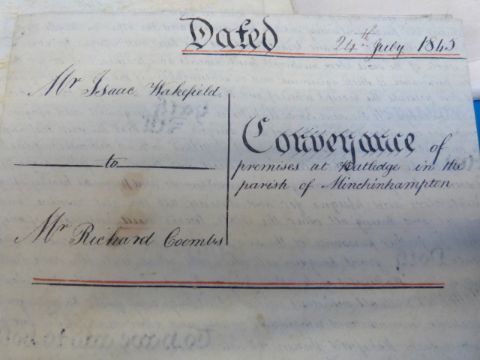 Dated 24th July 1845
Mr Isaac Wakefield
to
Mr Richard Coombs
Conveyance of
premises at Watledge in the
parish of Minchinhampton